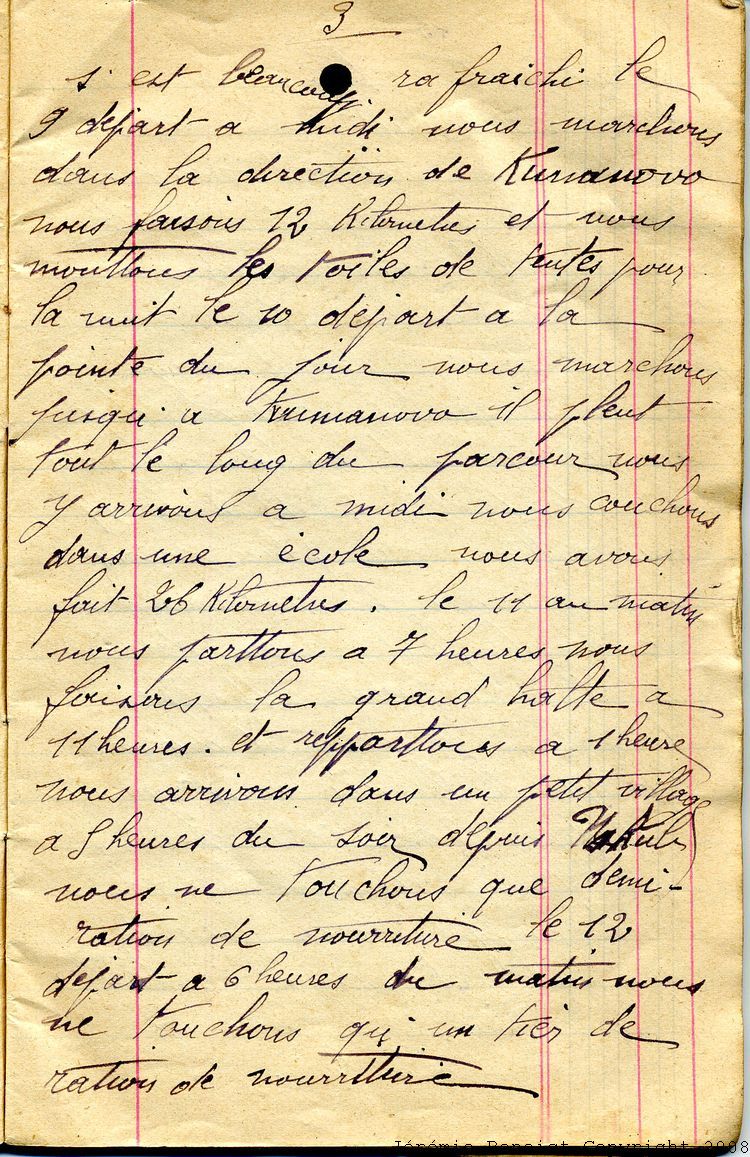 3
s'est beaucoup rafraichi le
9 départ a midi nous marchons
dans la direction de Kumanovo
nous faisons 12 Kilometres et nous
monttons les toiles de tentes pour
la nuit le 10 départ a la
pointe du jour nous marchons
jusqu'a Kumanovo il pleut
tout le long du parcour nous
y arrivons a midi nous couchons
dans une école nous avons
fait 26 Kilometres. le 11 au matin
nous parttons a 7 heures nous
faisons la grand halte a
11 heures. et repparttons a 1 heure
nous arrivons dans un petit village
a 5 heures du soir depuis
nous ne touchons que demi-
ration de nourriture le 12
départ a 6 heures du matin nous
ne touchons qu'un tier de
ration de nourriture
Jérémie Benoist Copyright 2008